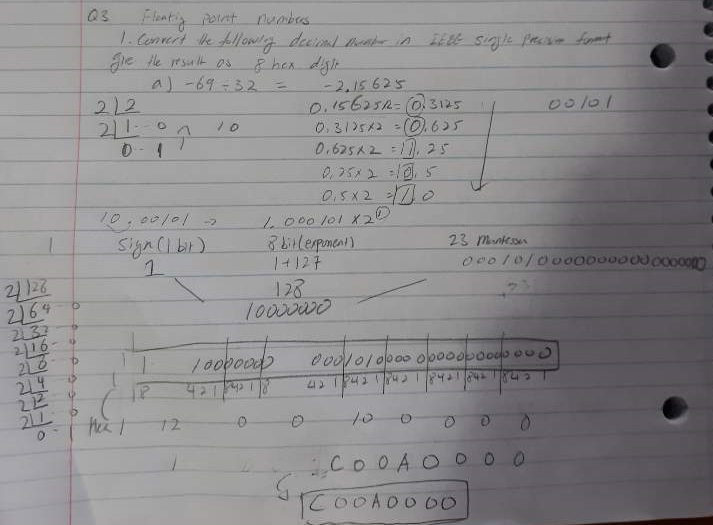 Q3 Floating point numbers
1. Convert the following decimal number in IEEE single precision format
give the result as 8 hex digit
a) -69 ÷ 32 = -2.15625
2 2 0.15625x2 = 0.3125 00101
2 1 - 0 10 0.3125x2 = 0.625
0 - 1 0.625x2 = 1.25
0.25x2 = 0.5
0.5x2 = 1.0
10.00101 → 1.000101 x 2^1
1 Sign (1 bit) 8 bit (exponent) 23 Mantissa
1 1+127 00010100000000000000000
128
10000000
2 128
2 64 - 0
2 32 - 0
2 16 - 0
2 8 - 0
2 4 - 0
2 2 - 0
2 1 - 0
0 - 1
1 10000000 00010100000000000000000
8 421 8421 8 421 8421 8421 8421 8421 8421
Hex 12 0 0 10 0 0 0 0
C 0 0 A 0 0 0 0
C00A0000